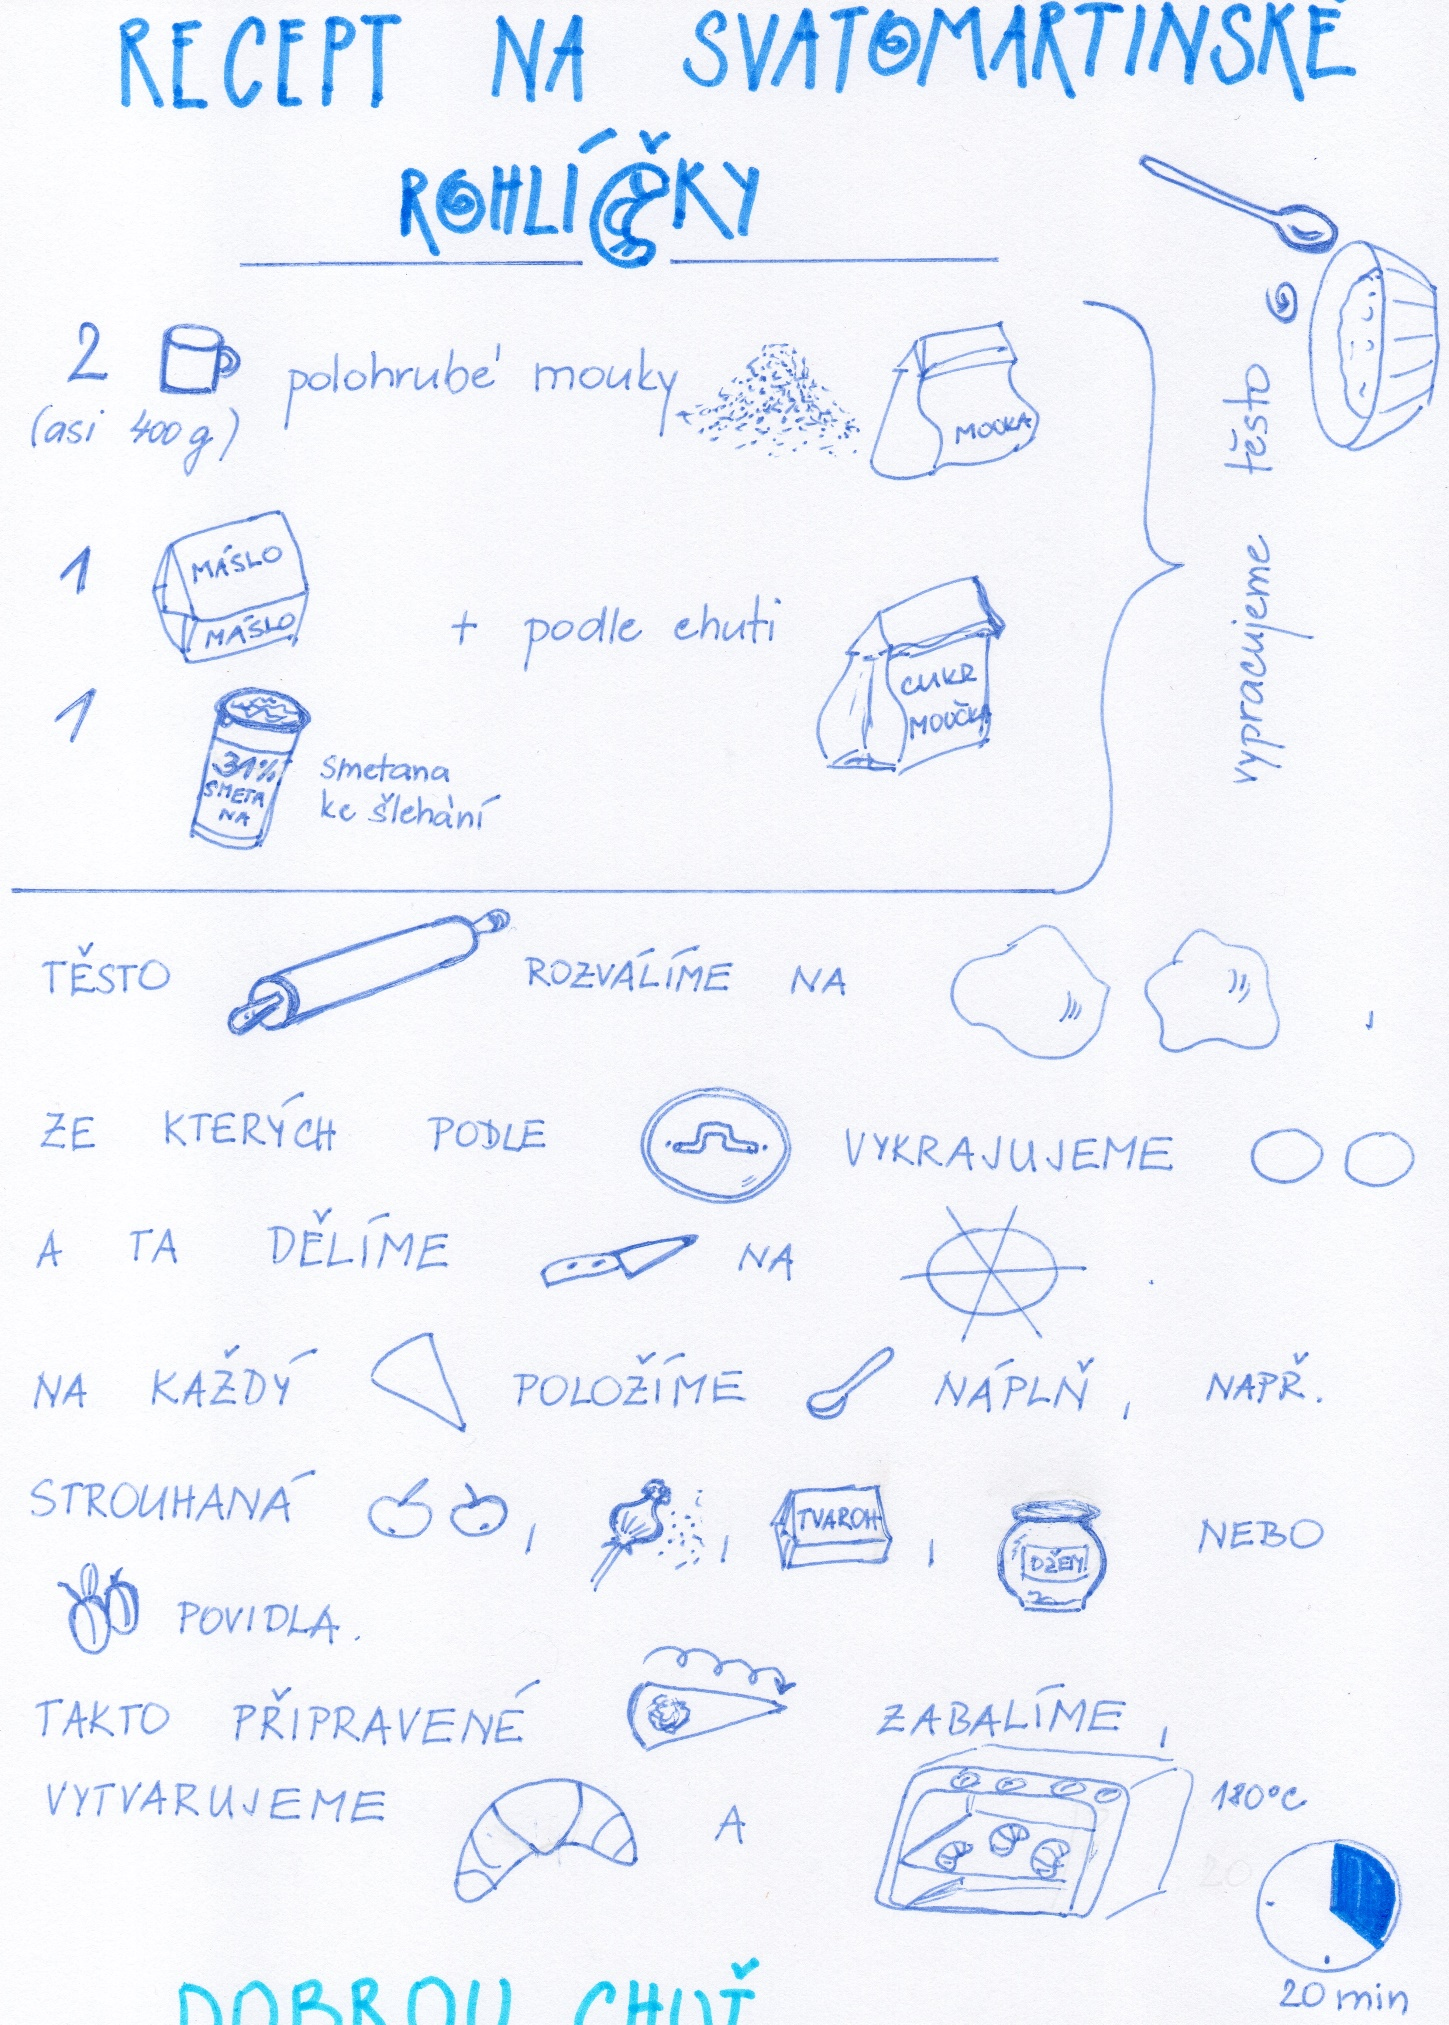 RECEPT NA SVATOMARTINSKÉ
ROHLÍČKY
2 polohrubé mouky
(asi 400g)
MOUKA
1 MÁSLO
MÁSLO
+ podle chuti
CUKR
MOUČKA
1 31%
SMETA
NA
smetana
ke šlehání
vypracujeme těsto
TĚSTO ROZVÁLÍME NA ,
ZE KTERÝCH PODLE VYKRAJUJEME
A TA DĚLÍME NA .
NA KAŽDÝ POLOŽÍME NÁPLŇ, NAPŘ.
STROUHANÁ , , TVAROH , DŽEM NEBO
POVIDLA.
TAKTO PŘIPRAVENÉ ZABALÍME,
VYTVARUJEME A 180°C
20 min
DOBROU CHUŤ